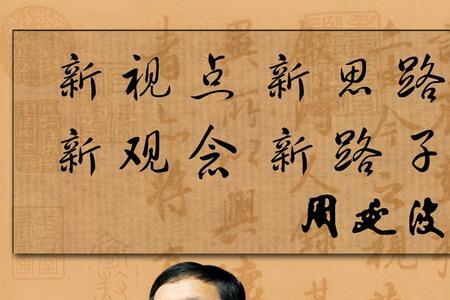 新视点新思路
新观念新路子
周延波